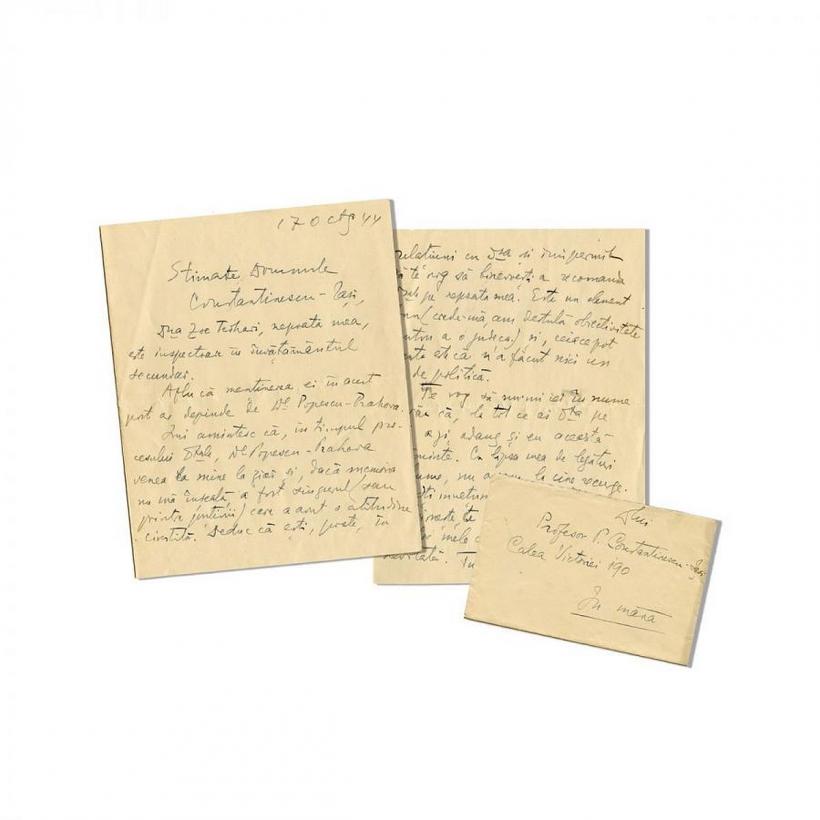 17 Oct 44
Stimate Domnule
Constantinescu-Iași,
Dna Zoe nepoata mea,
este inspectoare în învățământul
secundar.
Aflu că menținerea ei în acest
post ar depinde de Dl Popescu-Prahova.
Îmi amintesc că, în timpul pro-
cesului Dtale, Dl Popescu-Prahova
venea la mine la ziar și, dacă memoria
nu mă înșeală, a fost singurul (sau
printre puținii) care a avut o atitudine
cinstită. Deduc că ești, poate, în
relațiuni cu Dsa și îmi permit
să te rog să binevoiești a recomanda
pe nepoata mea. Este un element
(crede-mă, am destulă obiectivitate
pentru a o judeca) și, ceiace pot
că n'a făcut nici un
de politică.
Te rog să nu-mi iei în nume
rău că, la tot ce ai Dta pe
azi, adaug și eu această
Cu lipsa mea de legături
nu la cine recurge.
mele
Dlui
Profesor P. Constantinescu-Iași
Calea Victoriei 190
În mâna